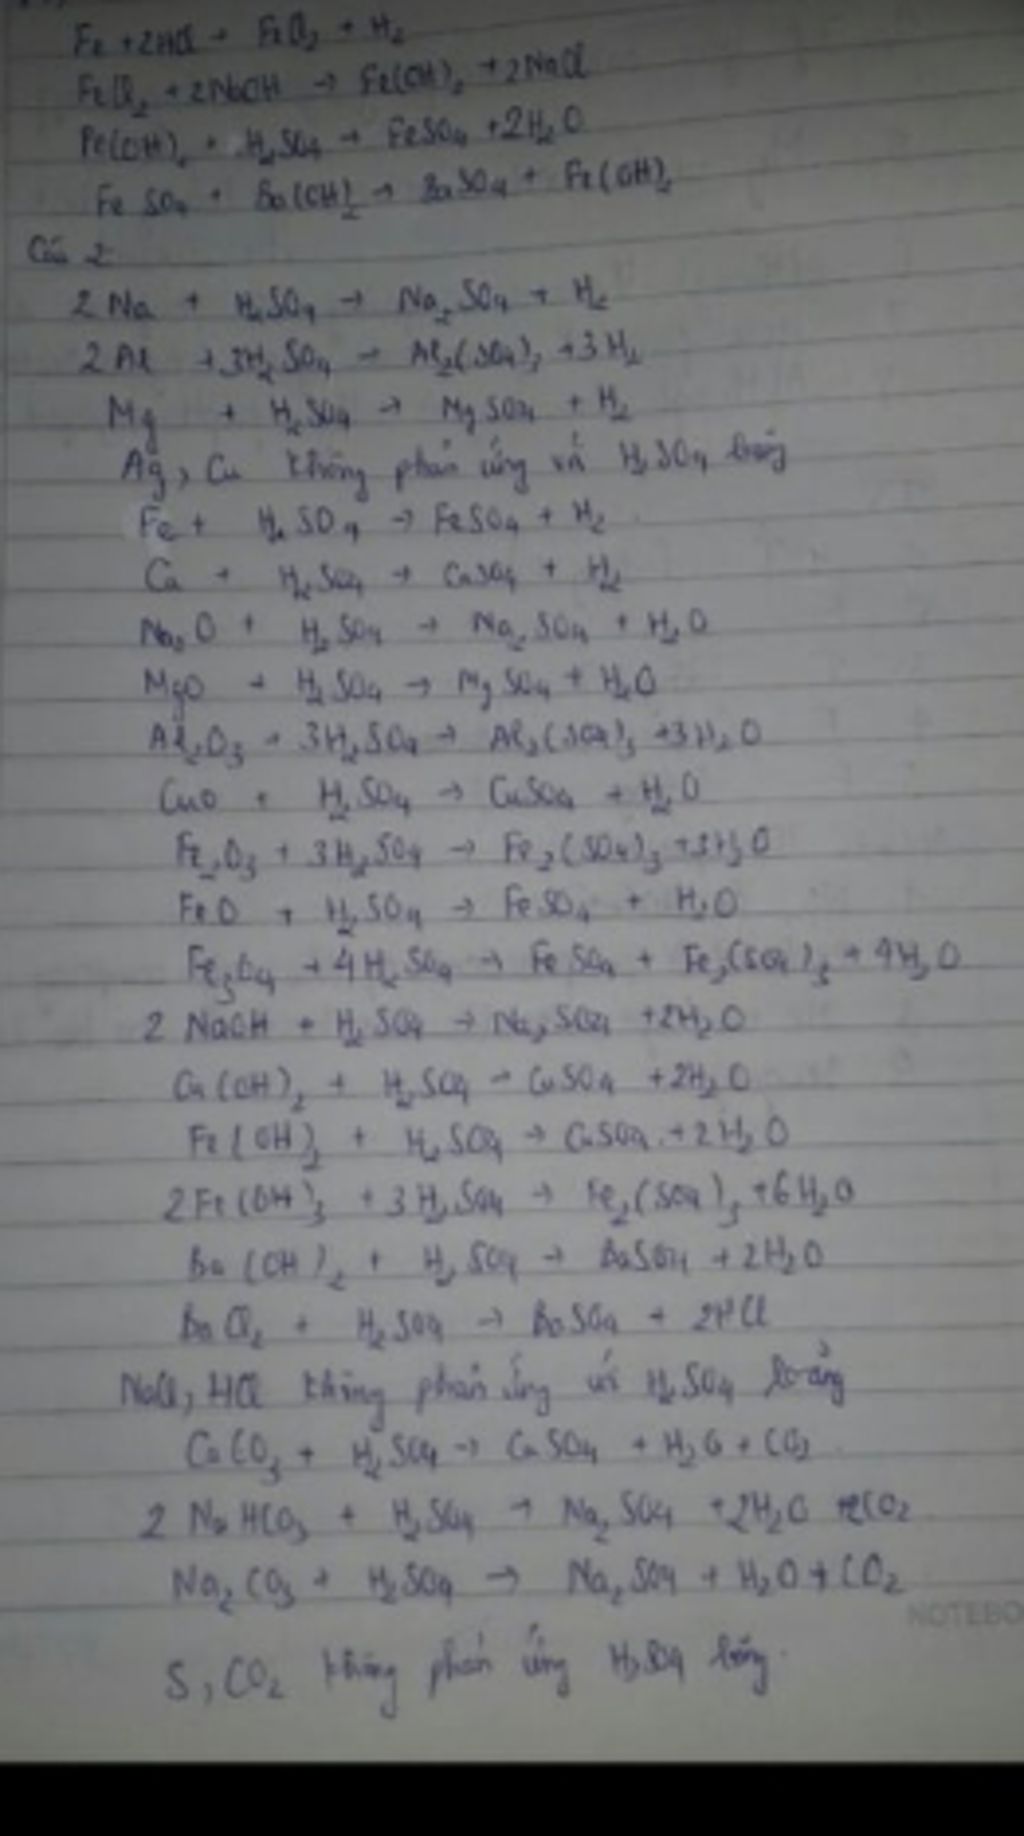 Fe + 2HCl → FeCl₂ + H₂
FeCl₂ + 2NaOH → Fe(OH)₂ + 2NaCl
Fe(OH)₂ + H₂SO₄ → FeSO₄ + 2H₂O
FeSO₄ + Ba(OH)₂ → BaSO₄ + Fe(OH)₂
Câu 2
2Na + H₂SO₄ → Na₂SO₄ + H₂
2Al + 3H₂SO₄ → Al₂(SO₄)₃ + 3H₂
Mg + H₂SO₄ → MgSO₄ + H₂
Ag, Cu không phản ứng với H₂SO₄ loãng
Fe + H₂SO₄ → FeSO₄ + H₂
Ca + H₂SO₄ → CaSO₄ + H₂
Na₂O + H₂SO₄ → Na₂SO₄ + H₂O
MgO + H₂SO₄ → MgSO₄ + H₂O
Al₂O₃ + 3H₂SO₄ → Al₂(SO₄)₃ + 3H₂O
CuO + H₂SO₄ → CuSO₄ + H₂O
Fe₂O₃ + 3H₂SO₄ → Fe₂(SO₄)₃ + 3H₂O
FeO + H₂SO₄ → FeSO₄ + H₂O
Fe₃O₄ + 4H₂SO₄ → FeSO₄ + Fe₂(SO₄)₃ + 4H₂O
2NaOH + H₂SO₄ → Na₂SO₄ + 2H₂O
Cu(OH)₂ + H₂SO₄ → CuSO₄ + 2H₂O
Fe(OH)₂ + H₂SO₄ → CuSO₄ + 2H₂O
2Fe(OH)₃ + 3H₂SO₄ → Fe₂(SO₄)₃ + 6H₂O
Ba(OH)₂ + H₂SO₄ → BaSO₄ + 2H₂O
BaCl₂ + H₂SO₄ → BaSO₄ + 2HCl
NaCl, HCl không phản ứng với H₂SO₄ loãng
CaCO₃ + H₂SO₄ → CaSO₄ + H₂O + CO₂
2NaHCO₃ + H₂SO₄ → Na₂SO₄ + 2H₂O + 2CO₂
Na₂CO₃ + H₂SO₄ → Na₂SO₄ + H₂O + CO₂
NOTEBO
S, CO₂ không phản ứng H₂SO₄ loãng.